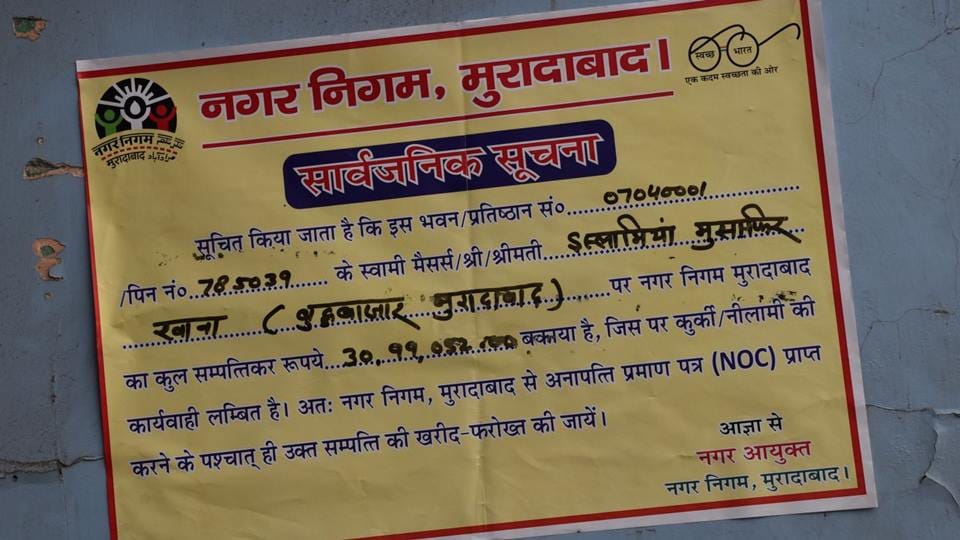 स्वच्छ भारत
एक कदम स्वच्छता की ओर
नगर निगम, मुरादाबाद।
नगर निगम
मुरादाबाद
सार्वजनिक सूचना
सूचित किया जाता है कि इस भवन/प्रतिष्ठान सं०...07040001
/पिन नं०...785039... के स्वामी मैसर्स/श्री/श्रीमती इस्लामियां मुसाफिर
खाना (बुद्धबाजार मुरादाबाद)...पर नगर निगम मुरादाबाद
का कुल सम्पत्तिकर रूपये...30,99,052.00 बकाया है, जिस पर कुर्की/नीलामी की
कार्यवाही लम्बित है। अतः नगर निगम, मुरादाबाद से अनापत्ति प्रमाण पत्र (NOC) प्राप्त
करने के पश्चात् ही उक्त सम्पत्ति की खरीद-फरोख्त की जायें।
आज्ञा से
नगर आयुक्त
नगर निगम, मुरादाबाद।